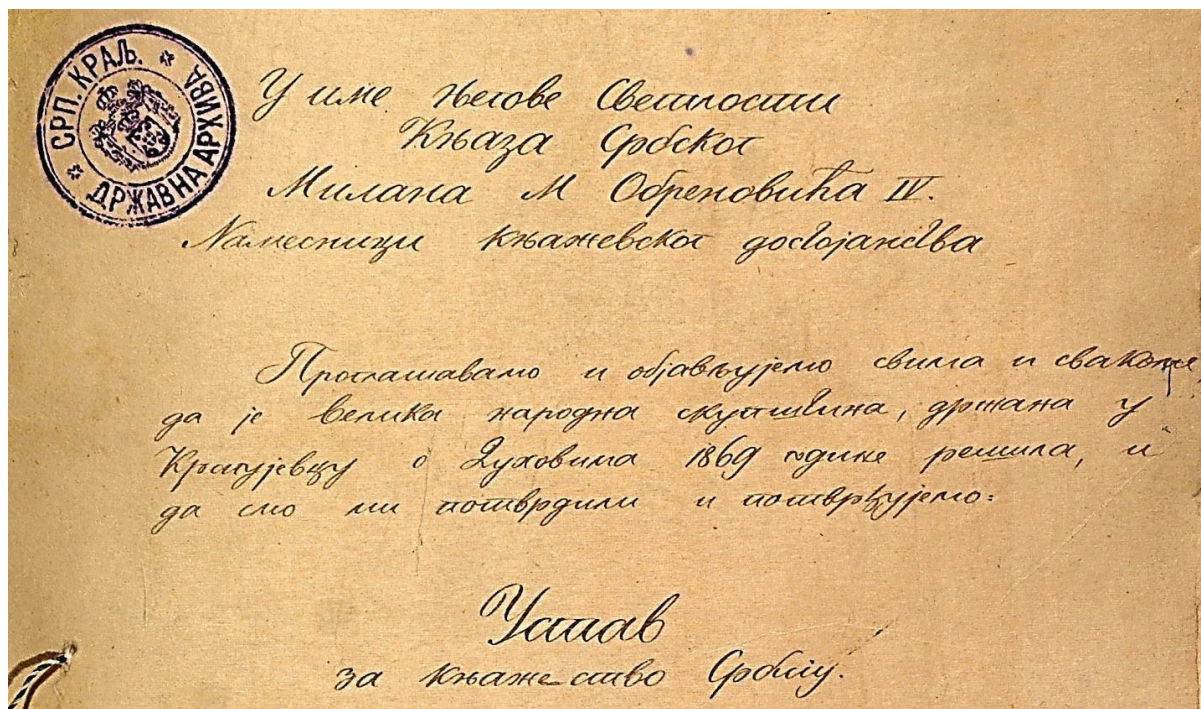 СРП. КРАЉ. * ДРЖАВНА АРХИВА *
У име Његове Светлости
Књаза Србског
Милана М Обреновића IV.
Намесници књажевског достојанства
Проглашавамо и објављујемо свима и свакоме
да је велика народна скупштина, држана у
Крагујевцу о Духовима 1869 године решила, и
да смо ми потврдили и потврђујемо:
Устав
за књажество Србију.